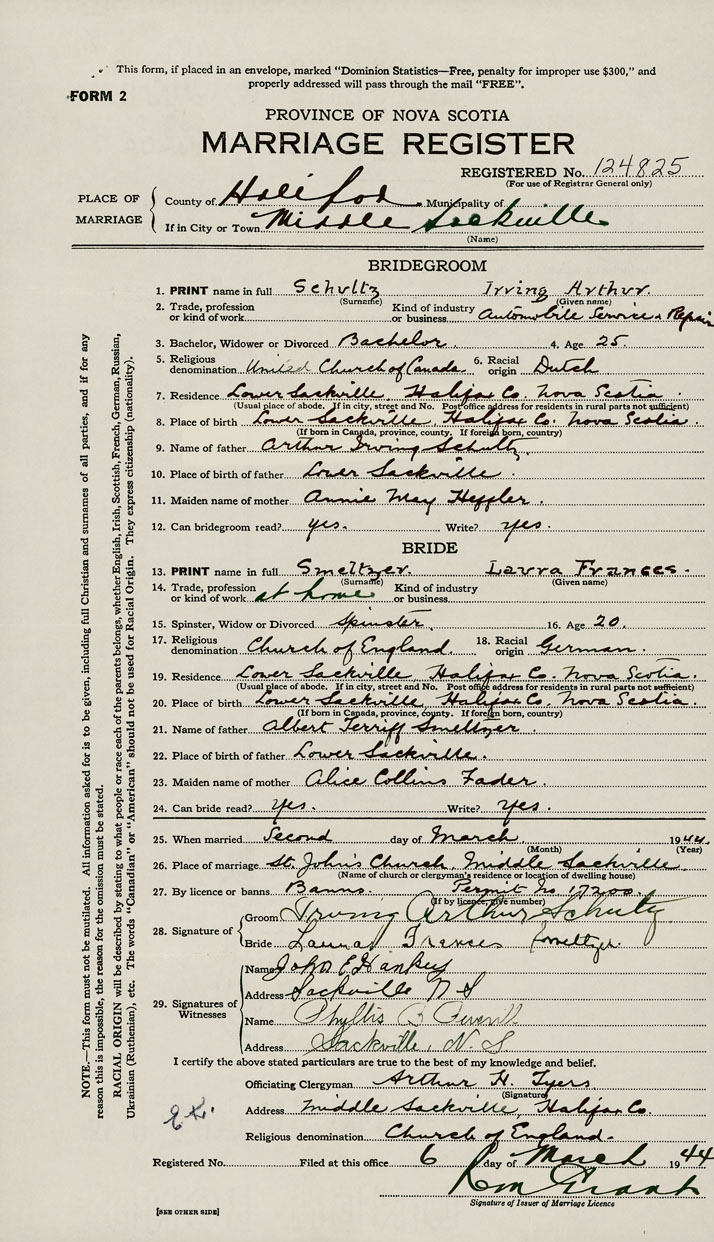 This form, if placed in an envelope, marked "Dominion Statistics—Free, penalty for improper use $300," and
properly addressed will pass through the mail "FREE".
FORM 2
PROVINCE OF NOVA SCOTIA
MARRIAGE REGISTER
REGISTERED No. 124825
(For use of Registrar General only)
PLACE OF MARRIAGE
County of Halifax Municipality of
If in City or Town Middle Sackville
(Name)
BRIDEGROOM
1. PRINT name in full Schultz Irving Arthur.
(Surname) (Given name)
2. Trade, profession or kind of work Kind of industry or business. Automobile Service & Repair
3. Bachelor, Widower or Divorced Bachelor. 4. Age 25.
5. Religious denomination United Church of Canada 6. Racial origin Dutch
7. Residence Lower Sackville, Halifax Co. Nova Scotia.
(Usual place of abode. If in city, street and No. Post office address for residents in rural parts not sufficient)
8. Place of birth Lower Sackville, Halifax Co. Nova Scotia.
(If born in Canada, province, county. If foreign born, country)
9. Name of father Arthur Irving Schultz.
10. Place of birth of father Lower Sackville.
11. Maiden name of mother Annie May Heffler.
12. Can bridegroom read? yes. Write? yes.
BRIDE
13. PRINT name in full Smeltzer. Laura Frances.
(Surname) (Given name)
14. Trade, profession or kind of work at home Kind of industry or business.
15. Spinster, Widow or Divorced Spinster. 16. Age 20.
17. Religious denomination Church of England. 18. Racial origin German.
19. Residence Lower Sackville, Halifax Co. Nova Scotia.
(Usual place of abode. If in city, street and No. Post office address for residents in rural parts not sufficient)
20. Place of birth Lower Sackville, Halifax Co. Nova Scotia.
(If born in Canada, province, county. If foreign born, country)
21. Name of father Albert Terriff Smeltzer
22. Place of birth of father Lower Sackville.
23. Maiden name of mother Alice Collins Fader.
24. Can bride read? yes. Write? yes.
25. When married Second day of March 1944.
(Month) (Year)
26. Place of marriage St. John's Church, Middle Sackville
(Name of church or clergyman's residence or location of dwelling house)
27. By licence or banns Banns. Permit No 17200.
(If by licence, give number)
28. Signature of
Groom Irving Arthur Schultz
Bride Laura Frances Smeltzer.
29. Signatures of Witnesses
Name John E Hankey
Address Sackville N S
Name Phyllis
Address Sackville, N. S
I certify the above stated particulars are true to the best of my knowledge and belief.
Officiating Clergyman Arthur H. Tyers
(Signature)
Address Middle Sackville, Halifax Co.
Religious denomination Church of England.
Registered No. Filed at this office 6 day of March 1944
Grant
Signature of Issuer of Marriage Licence
[SEE OTHER SIDE]
NOTE.—This form must not be mutilated. All information asked for is to be given, including full Christian and surnames of all parties, and if for any
reason this is impossible, the reason for the omission must be stated.
RACIAL ORIGIN will be described by stating to what people or race each of the parents belongs, whether English, Irish, Scottish, French, German, Russian,
Ukrainian (Ruthenian), etc. The words "Canadian" or "American" should not be used for Racial Origin. They express citizenship (nationality).